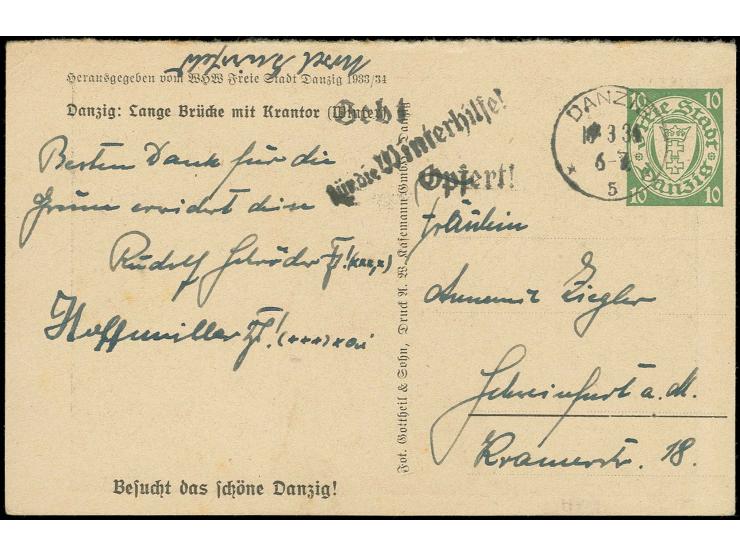 Herausgegeben vom WHW Freie Stadt Danzig 1933/34
Danzig: Lange Brücke mit Krantor (Winter)
Besten Dank für die
Grüsse erwidert diese
Rudolf Schröder
Hoffmiller
Besucht das schöne Danzig!
Fot. Gottheil & Sohn, Druck A. W. Kafemann GmbH, Danzig
Gebt
für die Winterhilfe!
Opfert!
DANZIG
3 3
6-7
5
10 10
Freie Stadt
Danzig
10 10
Fräulein
Annemie Ziegler
Schweinfurt a. M.
Kramerstr. 18.